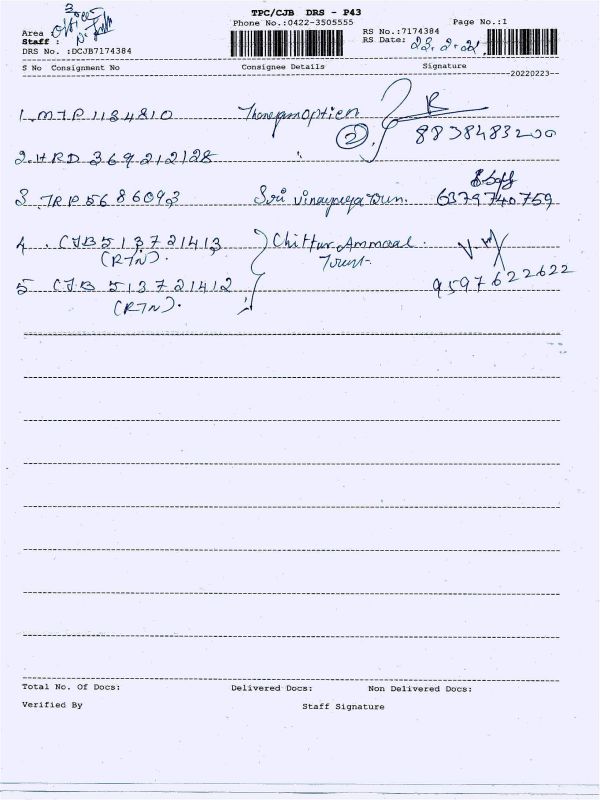 TPC/CJB DRS - P43
Phone No.:0422-3505555
Page No.:1
Area :
Staff :
RS No.:7174384
RS Date: 23.2.22
DRS No. :DCJB7174384
S No Consignment No Consignee Details Signature
20220223
1. MTP 1134810
(2) 8838483200
2. HRD 369212128 "
3. TRP 5686093 Sri Vinayaga 6379740759
4. CJB 513721413 Chittur Ammaal
(RTN). Trust.
5 CJB 513721412 9597622622
(RTN).
Total No. Of Docs: Delivered Docs: Non Delivered Docs:
Verified By Staff Signature